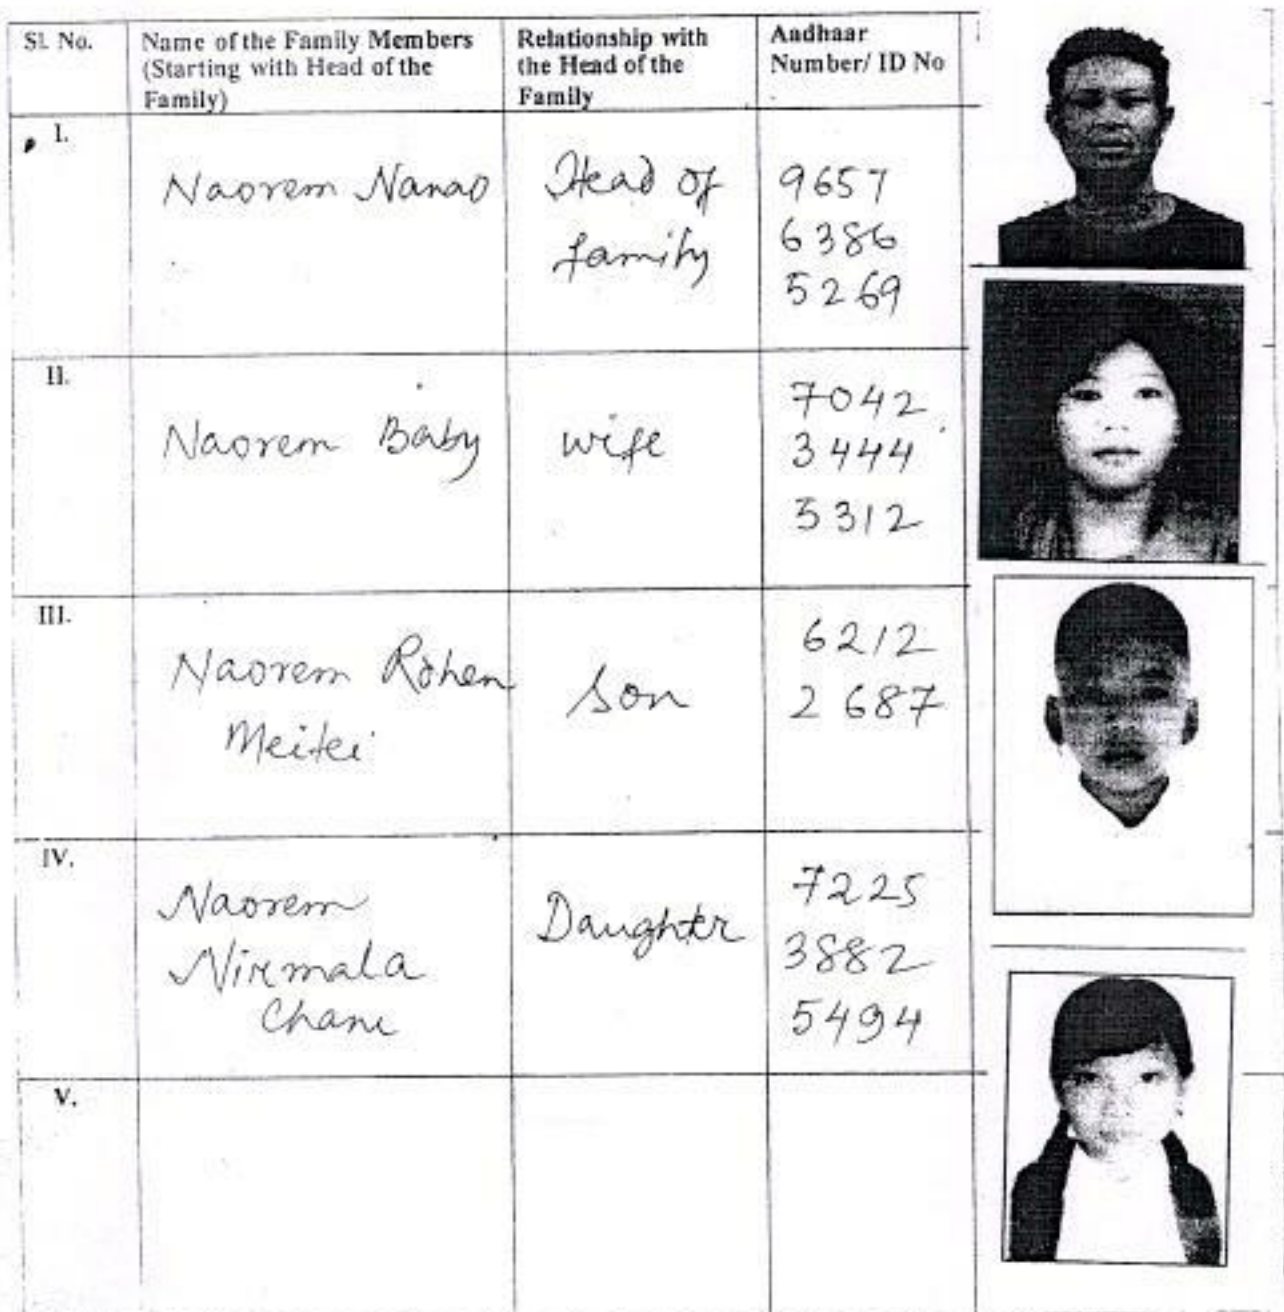 Sl. No.
Name of the Family Members
(Starting with Head of the
Family)
Relationship with
the Head of the
Family
Aadhaar
Number/ ID No
I.
Naorem Nanao
Head of
family
9657
6386
5269
II.
Naorem Baby
wife
7042
3444
5312
III.
Naorem Rohen
Meitei
Son
6212
2687
IV.
Naorem
Nirmala
Chanu
Daughter
7225
3882
5494
V.